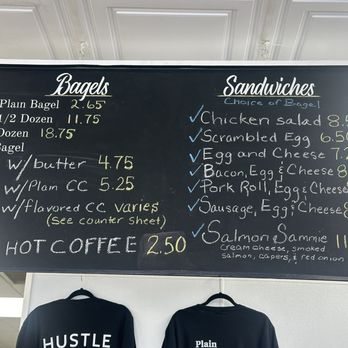 Bagels
Plain Bagel 2.65
1/2 Dozen 11.75
Dozen 18.75
Bagel
w/butter 4.75
w/Plain CC 5.25
w/flavored CC varies
(see counter sheet)
HOT COFFEE 2.50
Sandwiches
Choice of Bagel
✓Chicken salad 8.5
✓Scrambled Egg 6.50
✓Egg and Cheese 7.2
✓Bacon, Egg & Cheese 8
✓Pork Roll, Egg & Cheese
✓Sausage, Egg & Cheese 8
✓Salmon Sammie 11
cream cheese, smoked
salmon, capers, & red onion
HUSTLE
Plain